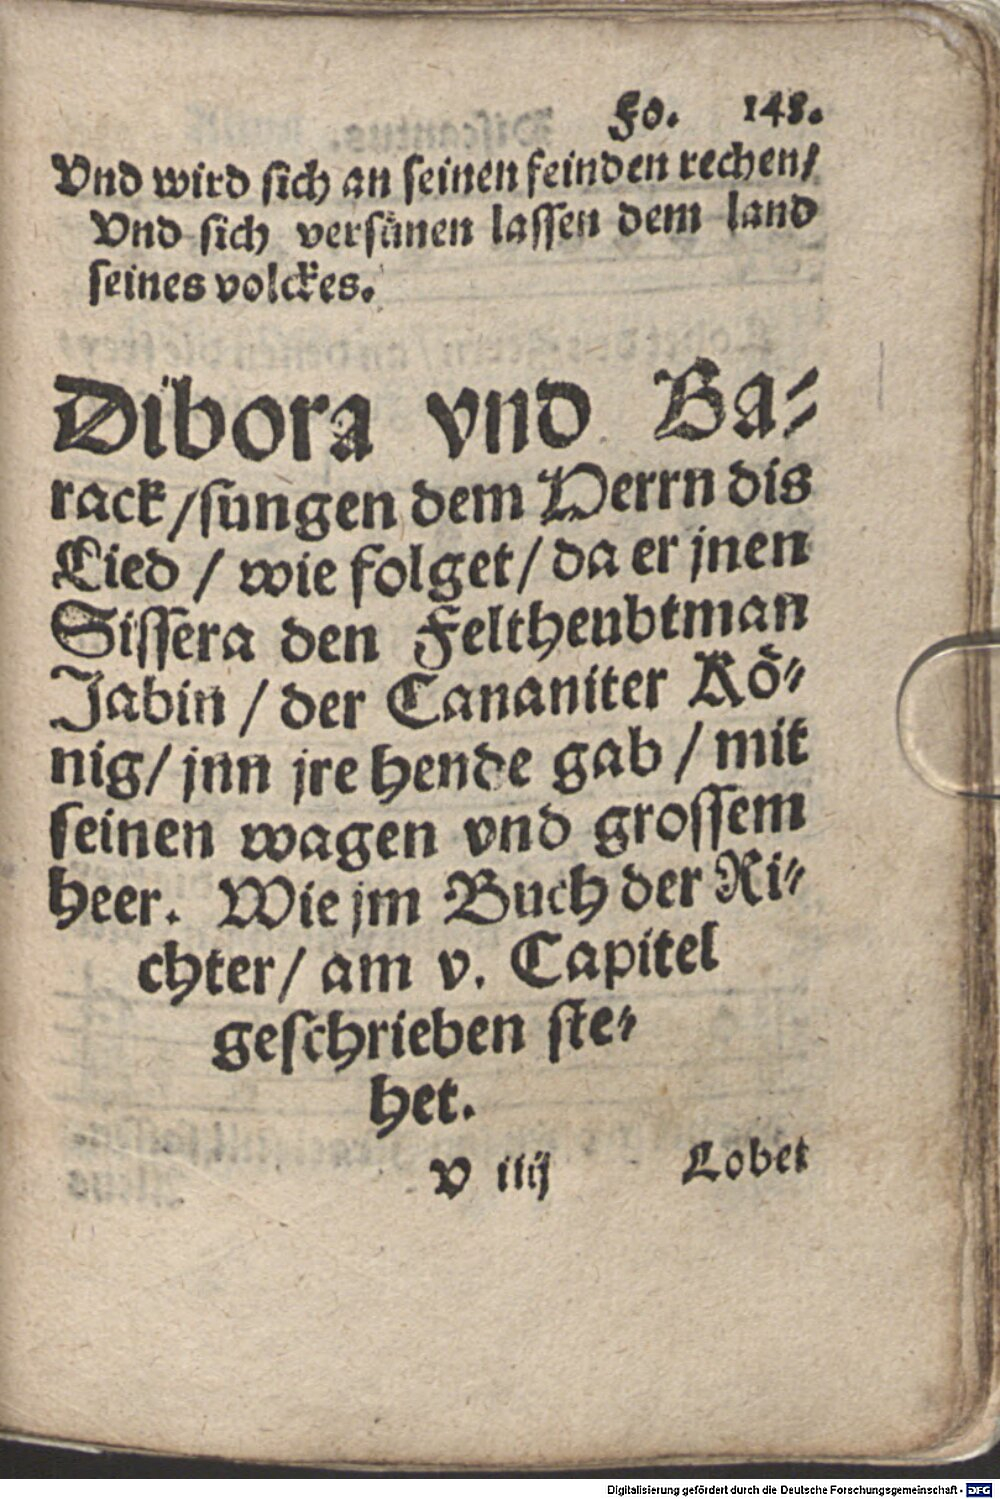 Fo. 148.
Vnd wird sich an seinen feinden rechen/
Vnd sich versünen lassen dem land
seines volckes.
Dibora vnd Ba-
rack/sungen dem Herrn dis
Lied / wie folget/ da er jnen
Sissera den Feltheubtman
Jabin / der Cananiter Kö-
nig/ jnn jre hende gab / mit
seinen wagen vnd grossem
heer. Wie jm Buch der Ri-
chter/ am v. Capitel
geschrieben ste-
het.
V iiij Lobet
Digitalisierung gefördert durch die Deutsche Forschungsgemeinschaft - DFG